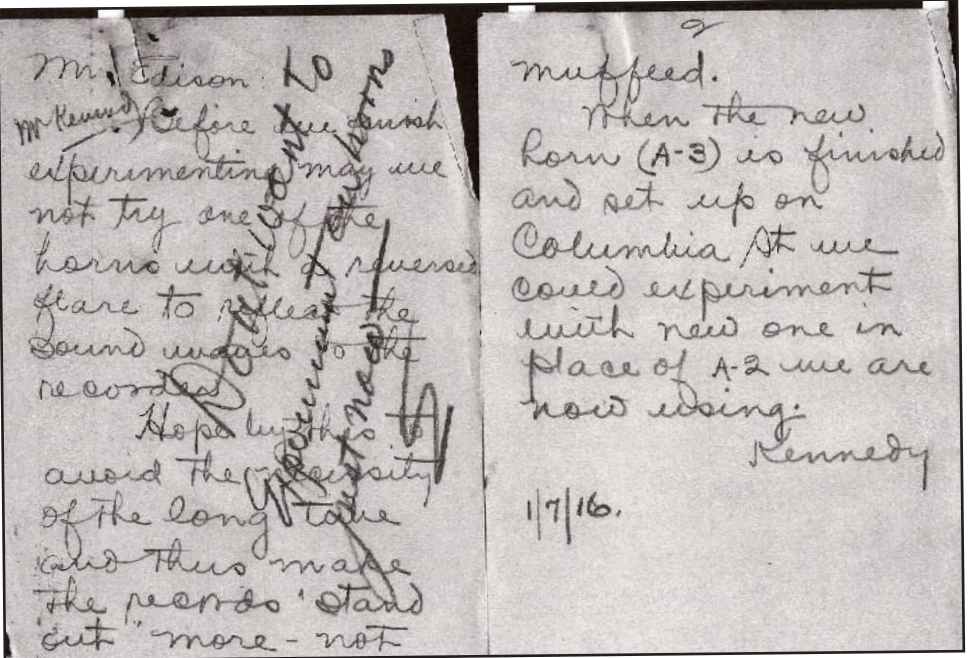 Mr. Edison
Mr Kennedy
Before we finish
experimenting may we
not try one of the
horns with a reversed
flare to reflect the
sound waves to the
recorder
Hope by this to
avoid the necessity
of the long tube
and thus make
the records "stand
out" more - not
Dont want to
experiment on horns
just now
2
muffeed.
When the new
horn (A-3) is finished
and set up on
Columbia St we
could experiment
with new one in
place of A-2 we are
now using.
Kennedy
1/7/16.